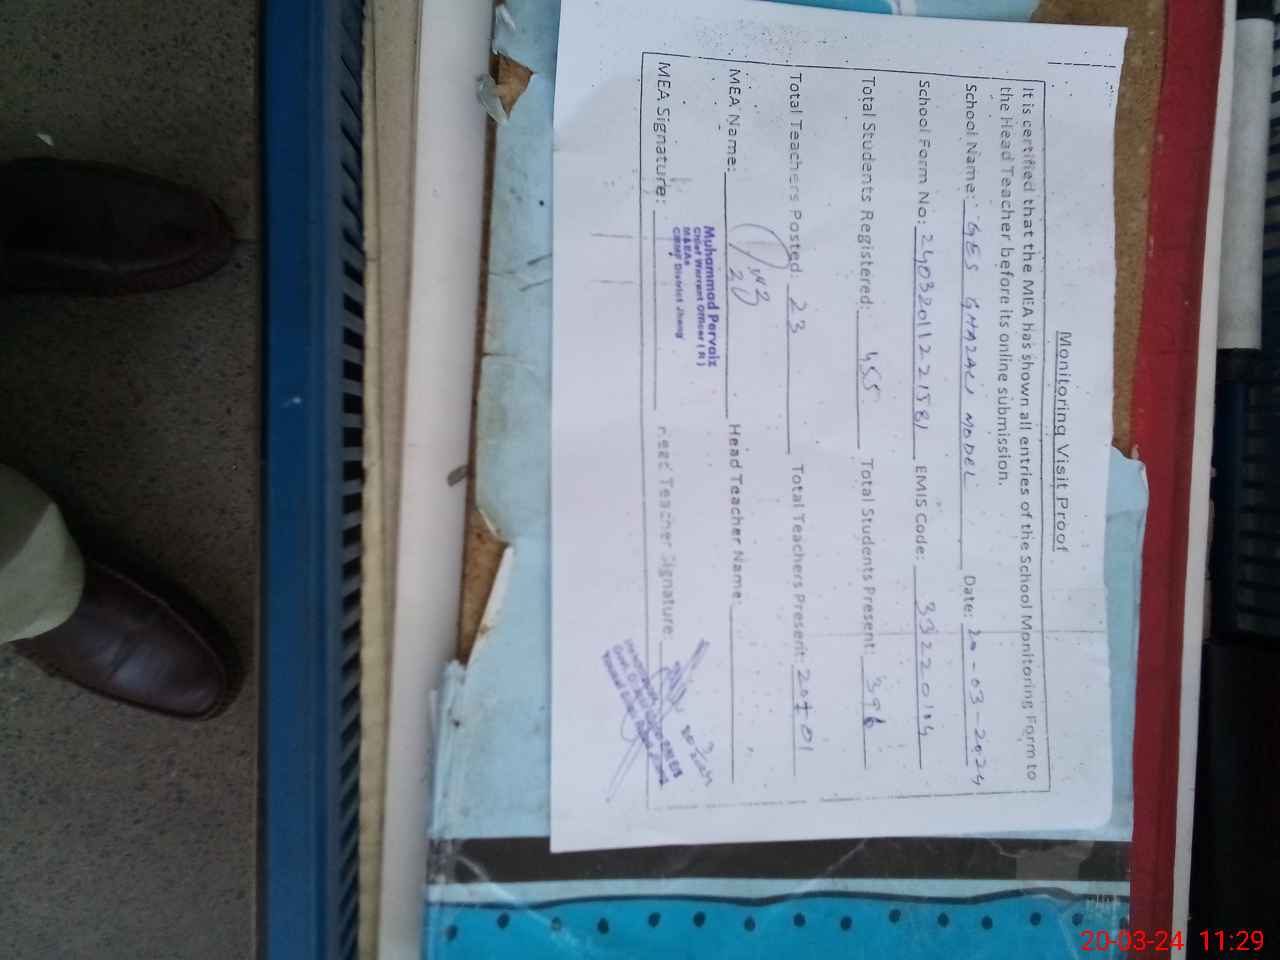 Monitoring Visit Proof
It is certified that the MEA has shown all entries of the School Monitoring Form to
the Head Teacher before its online submission.
School Name: GES GHAZALI MODEL Date: 20-03-2024
School Form No: 24032011221581 EMIS Code: 33220144
Total Students Registered: 455 Total Students Present: 396
Total Teachers Posted: 23 Total Teachers Present: 20+01
MEA Name: Head Teacher Name:
Muhammad Pervaiz
Chief Warrant Officer (R)
M&EAs
CMMF District Jhang
MEA Signature: Head Teacher Signature
20-03-24 11:29